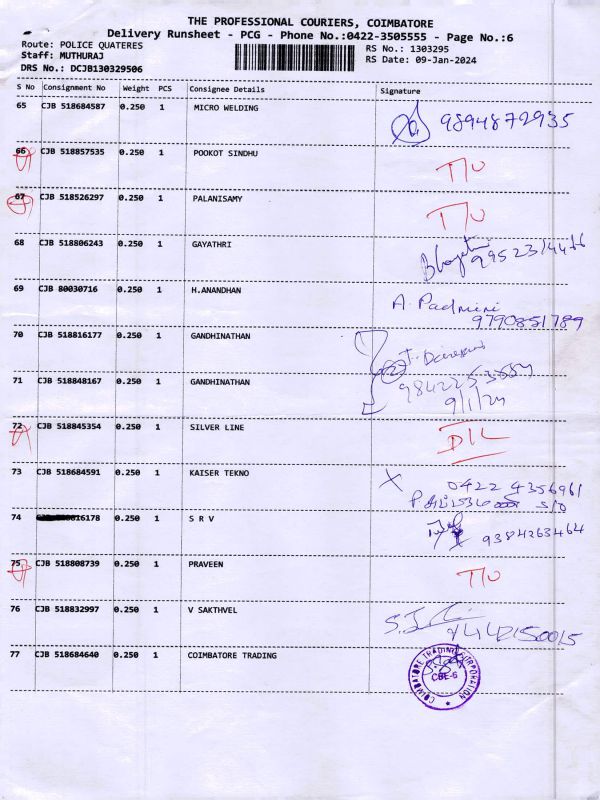 THE PROFESSIONAL COURIERS, COIMBATORE
Delivery Runsheet - PCG - Phone No.:0422-3505555 - Page No.:6
Route: POLICE QUATERES RS No.: 1303295
Staff: MUTHURAJ RS Date: 09-Jan-2024
DRS No.: DCJB130329506
S No Consignment No Weight PCS Consignee Details Signature
65 CJB 518684587 0.250 1 MICRO WELDING 9894872935
66 CJB 518857535 0.250 1 POOKOT SINDHU T/U
67 CJB 518526297 0.250 1 PALANISAMY T/U
68 CJB 518806243 0.250 1 GAYATHRI
69 CJB 80030716 0.250 1 H.ANANDHAN A. Padmini
9790851789
70 CJB 518816177 0.250 1 GANDHINATHAN
71 CJB 518848167 0.250 1 GANDHINATHAN
9/1/24
72 CJB 518845354 0.250 1 SILVER LINE D/L
73 CJB 518684591 0.250 1 KAISER TEKNO X 0422 4356961
74 6178 0.250 1 S R V 9384263464
75 CJB 518808739 0.250 1 PRAVEEN T/U
76 CJB 518832997 0.250 1 V SAKTHVEL
77 CJB 518684640 0.250 1 COIMBATORE TRADING
COIMBATORE TRADING CORPORATION
CBE-6